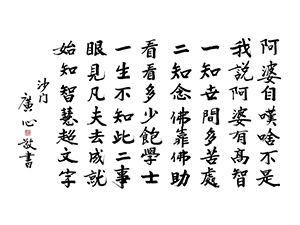 阿婆自嘆啥不是
我說阿婆有高智
一知世間多苦處
二知念佛靠佛助
看看多少飽學士
一生不知此二事
眼見凡夫去成就
始知智慧超文字
沙門
廣心敬書